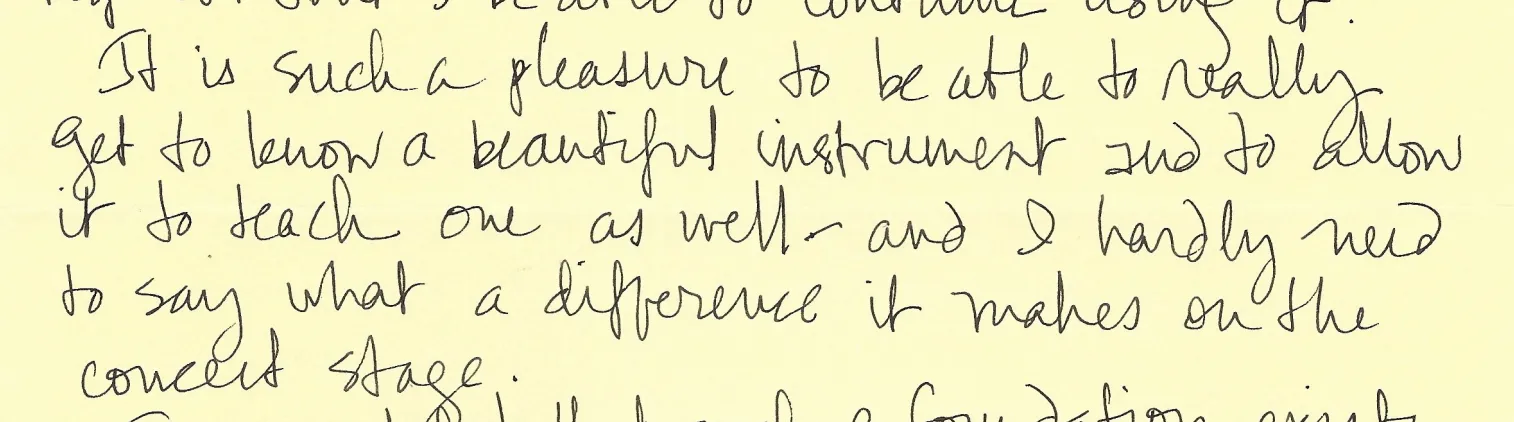 be able to continue using it.
It is such a pleasure to be able to really
get to know a beautiful instrument and to allow
it to teach one as well - and I hardly need
to say what a difference it makes on the
concert stage.
a foundation exists